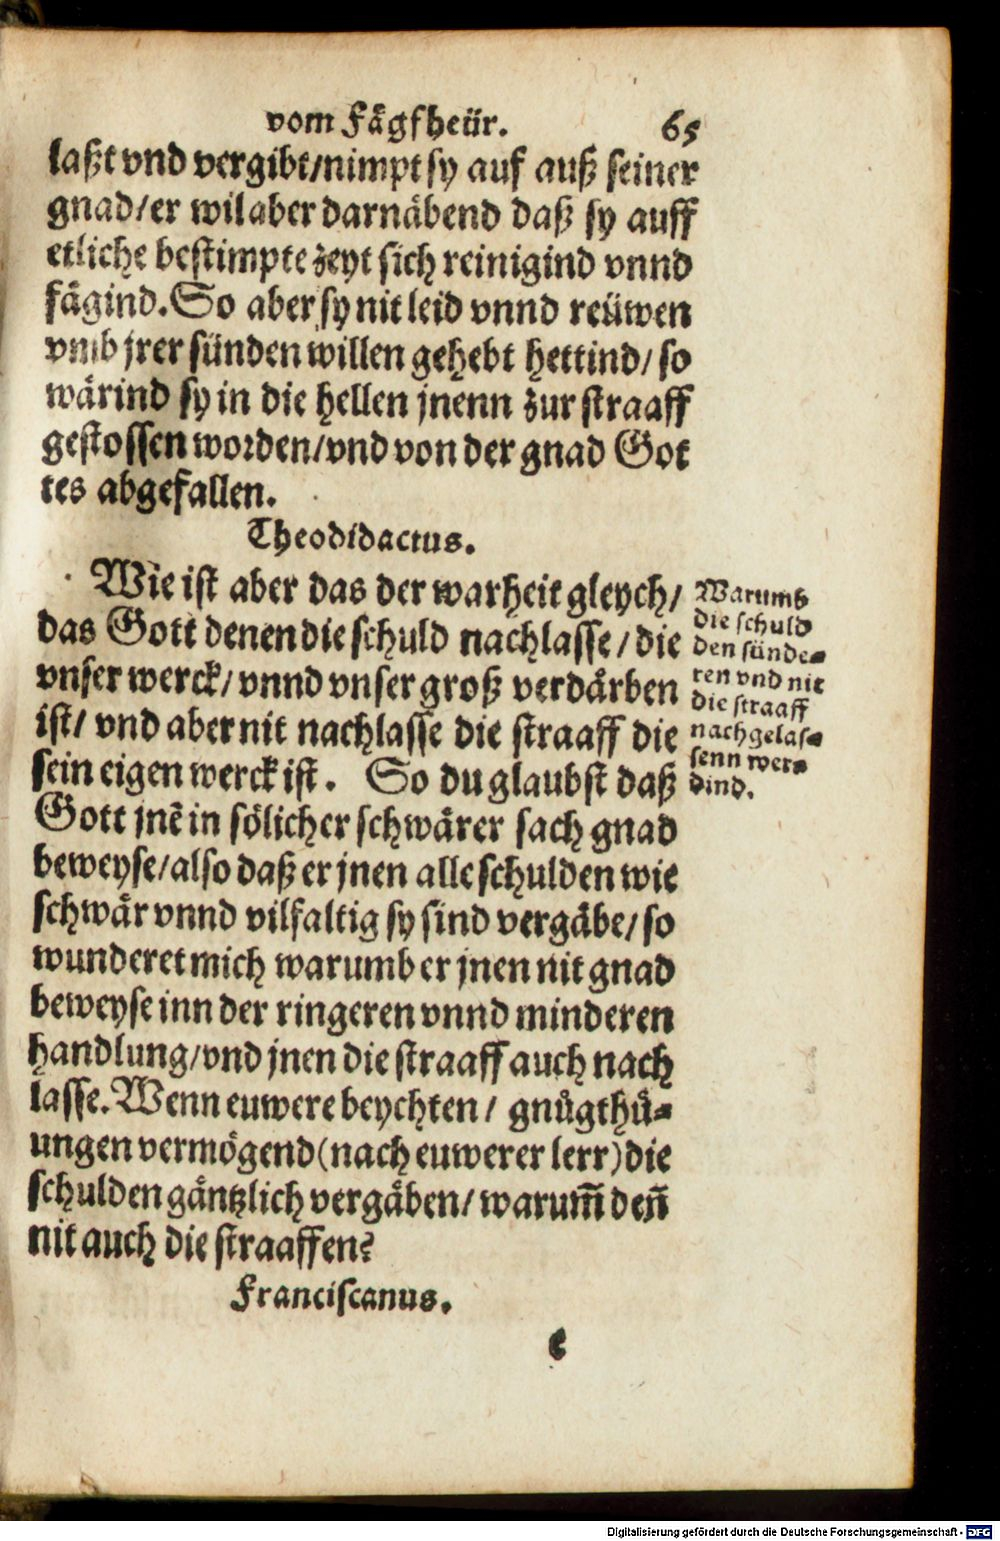 vom Fägfheür. 65
laßt vnd vergibt/nimpt sy auf auß seiner
gnad/er wil aber darnäbend daß sy auff
etliche bestimpte zeyt sich reinigind vnnd
fägind. So aber sy nit leid vnnd reüwen
vmb jrer sünden willen gehebt hettind/so
wärind sy in die hellen jnenn zur straaff
gestossen worden/vnd von der gnad Got
tes abgefallen.
Theodidactus.
Wie ist aber das der warheit gleych/
das Gott denen die schuld nachlasse/die
vnser werck/vnnd vnser groß verdärben
ist/vnd aber nit nachlasse die straaff die
sein eigen werck ist. So du glaubst daß
Gott jnē in sölicher schwärer sach gnad
beweyse/also daß er jnen alle schulden wie
schwär vnnd vilfaltig sy sind vergäbe/so
wunderet mich warumb er jnen nit gnad
beweyse inn der ringeren vnnd minderen
handlung/vnd jnen die straaff auch nach
lasse. Wenn euwere beychten/ gnůgthů⸗
ungen vermögend(nach euwerer lerr)die
schulden gäntzlich vergäben/warum̄ den̄
nit auch die straaffen?
Franciscanus.
e
Warumb
die schuld
den sünde⸗
ren vnd nit
die straaff
nachgelas⸗
senn wer⸗
dind.
Digitalisierung gefördert durch die Deutsche Forschungsgemeinschaft - DFG